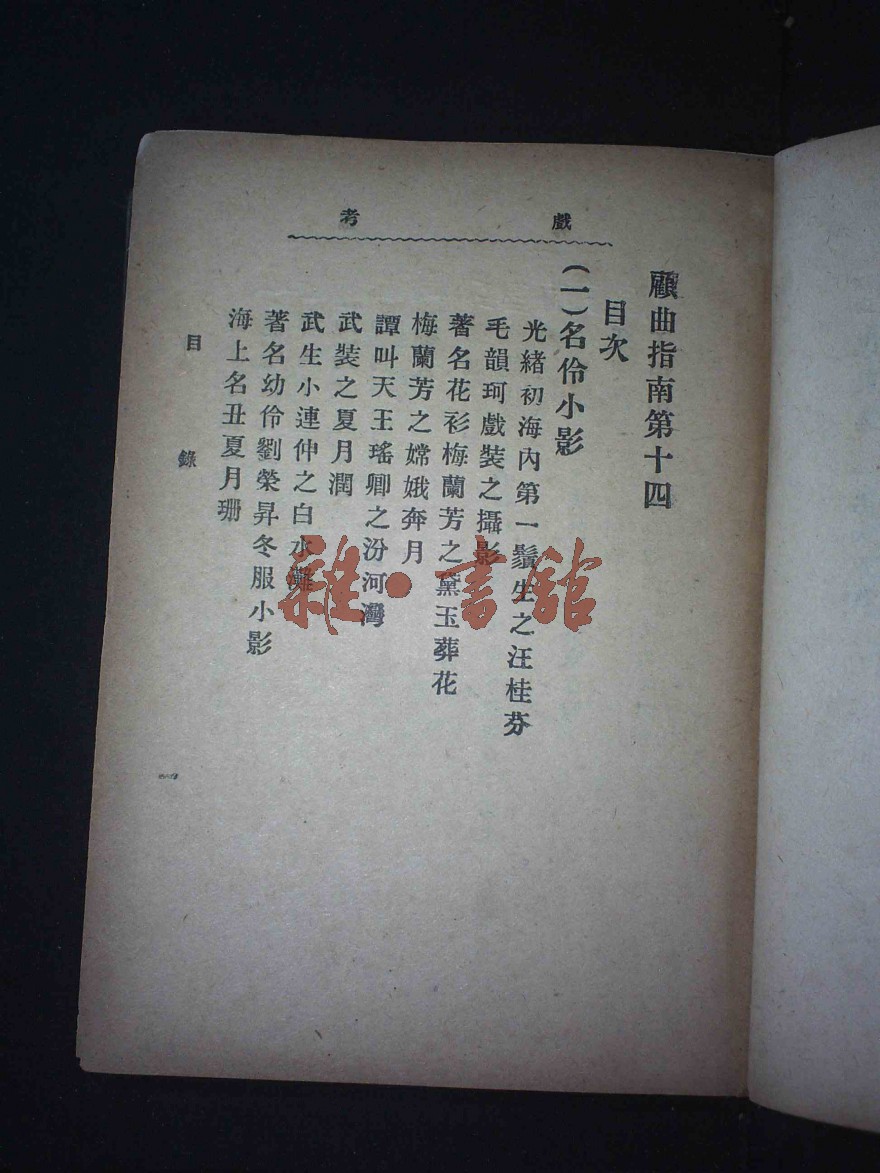 戲考
顧曲指南第十四
目次
（一）名伶小影
光緒初海內第一鬚生之汪桂芬
毛韻珂戲裝之攝影
著名花衫梅蘭芳之黛玉葬花
梅蘭芳之嫦娥奔月
譚叫天王瑤卿之汾河灣
武裝之夏月潤
武生小連仲之白水灘
著名幼伶劉榮昇冬服小影
海上名丑夏月珊
目錄
雜·書館